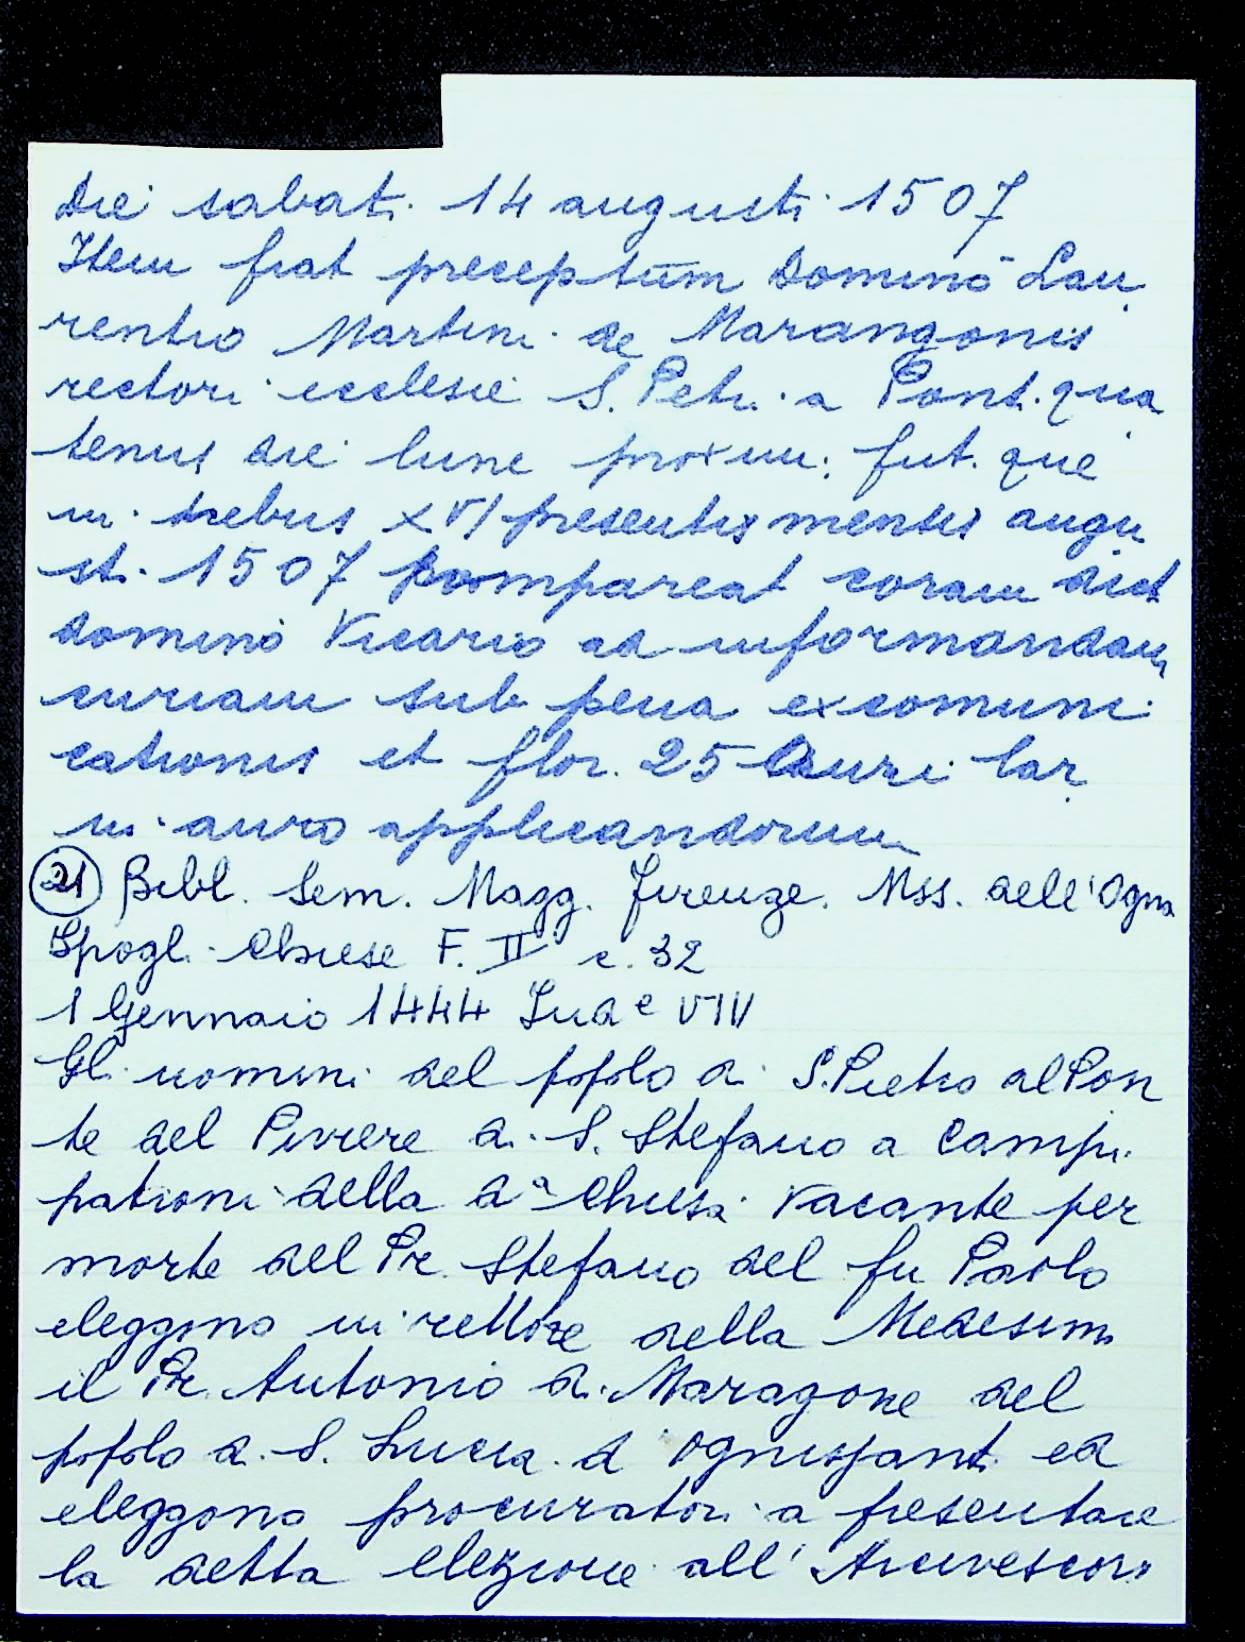 Die sabati 14 augusti 1507
Item fiat preceptum Domino Lau
rentio Martini de Marangonis
rectori ecclesie S. Petri a Ponti qua
tenus die lune proxim: fut. que
in diebus XVI presentis mensis augu
sti 1507 compareat coram dict
domino Vicario ad informandam
curiam sub pena excomuni
cationis et flor. 25 auri lar
in auro applicandorum
21 Bibl. Sem. Magg. Firenze. Mss. dell'Ogna
Spogli Chiese F. II c. 32
1 Gennaio 1444 Ind e VIV
Gli uomini del popolo di S. Pietro al Pon
te del Piviere di S. Stefano a Campi
patroni della dª Chiesa vacante per
morte del Pr. Stefano del fu Paolo
eleggono in rettore della Medesima
il Pr. Antonio di Maragone del
popolo di S. Lucia d'Ognissanti ed
eleggono procuratori a presentare
la detta elezione all'Arcivescovo